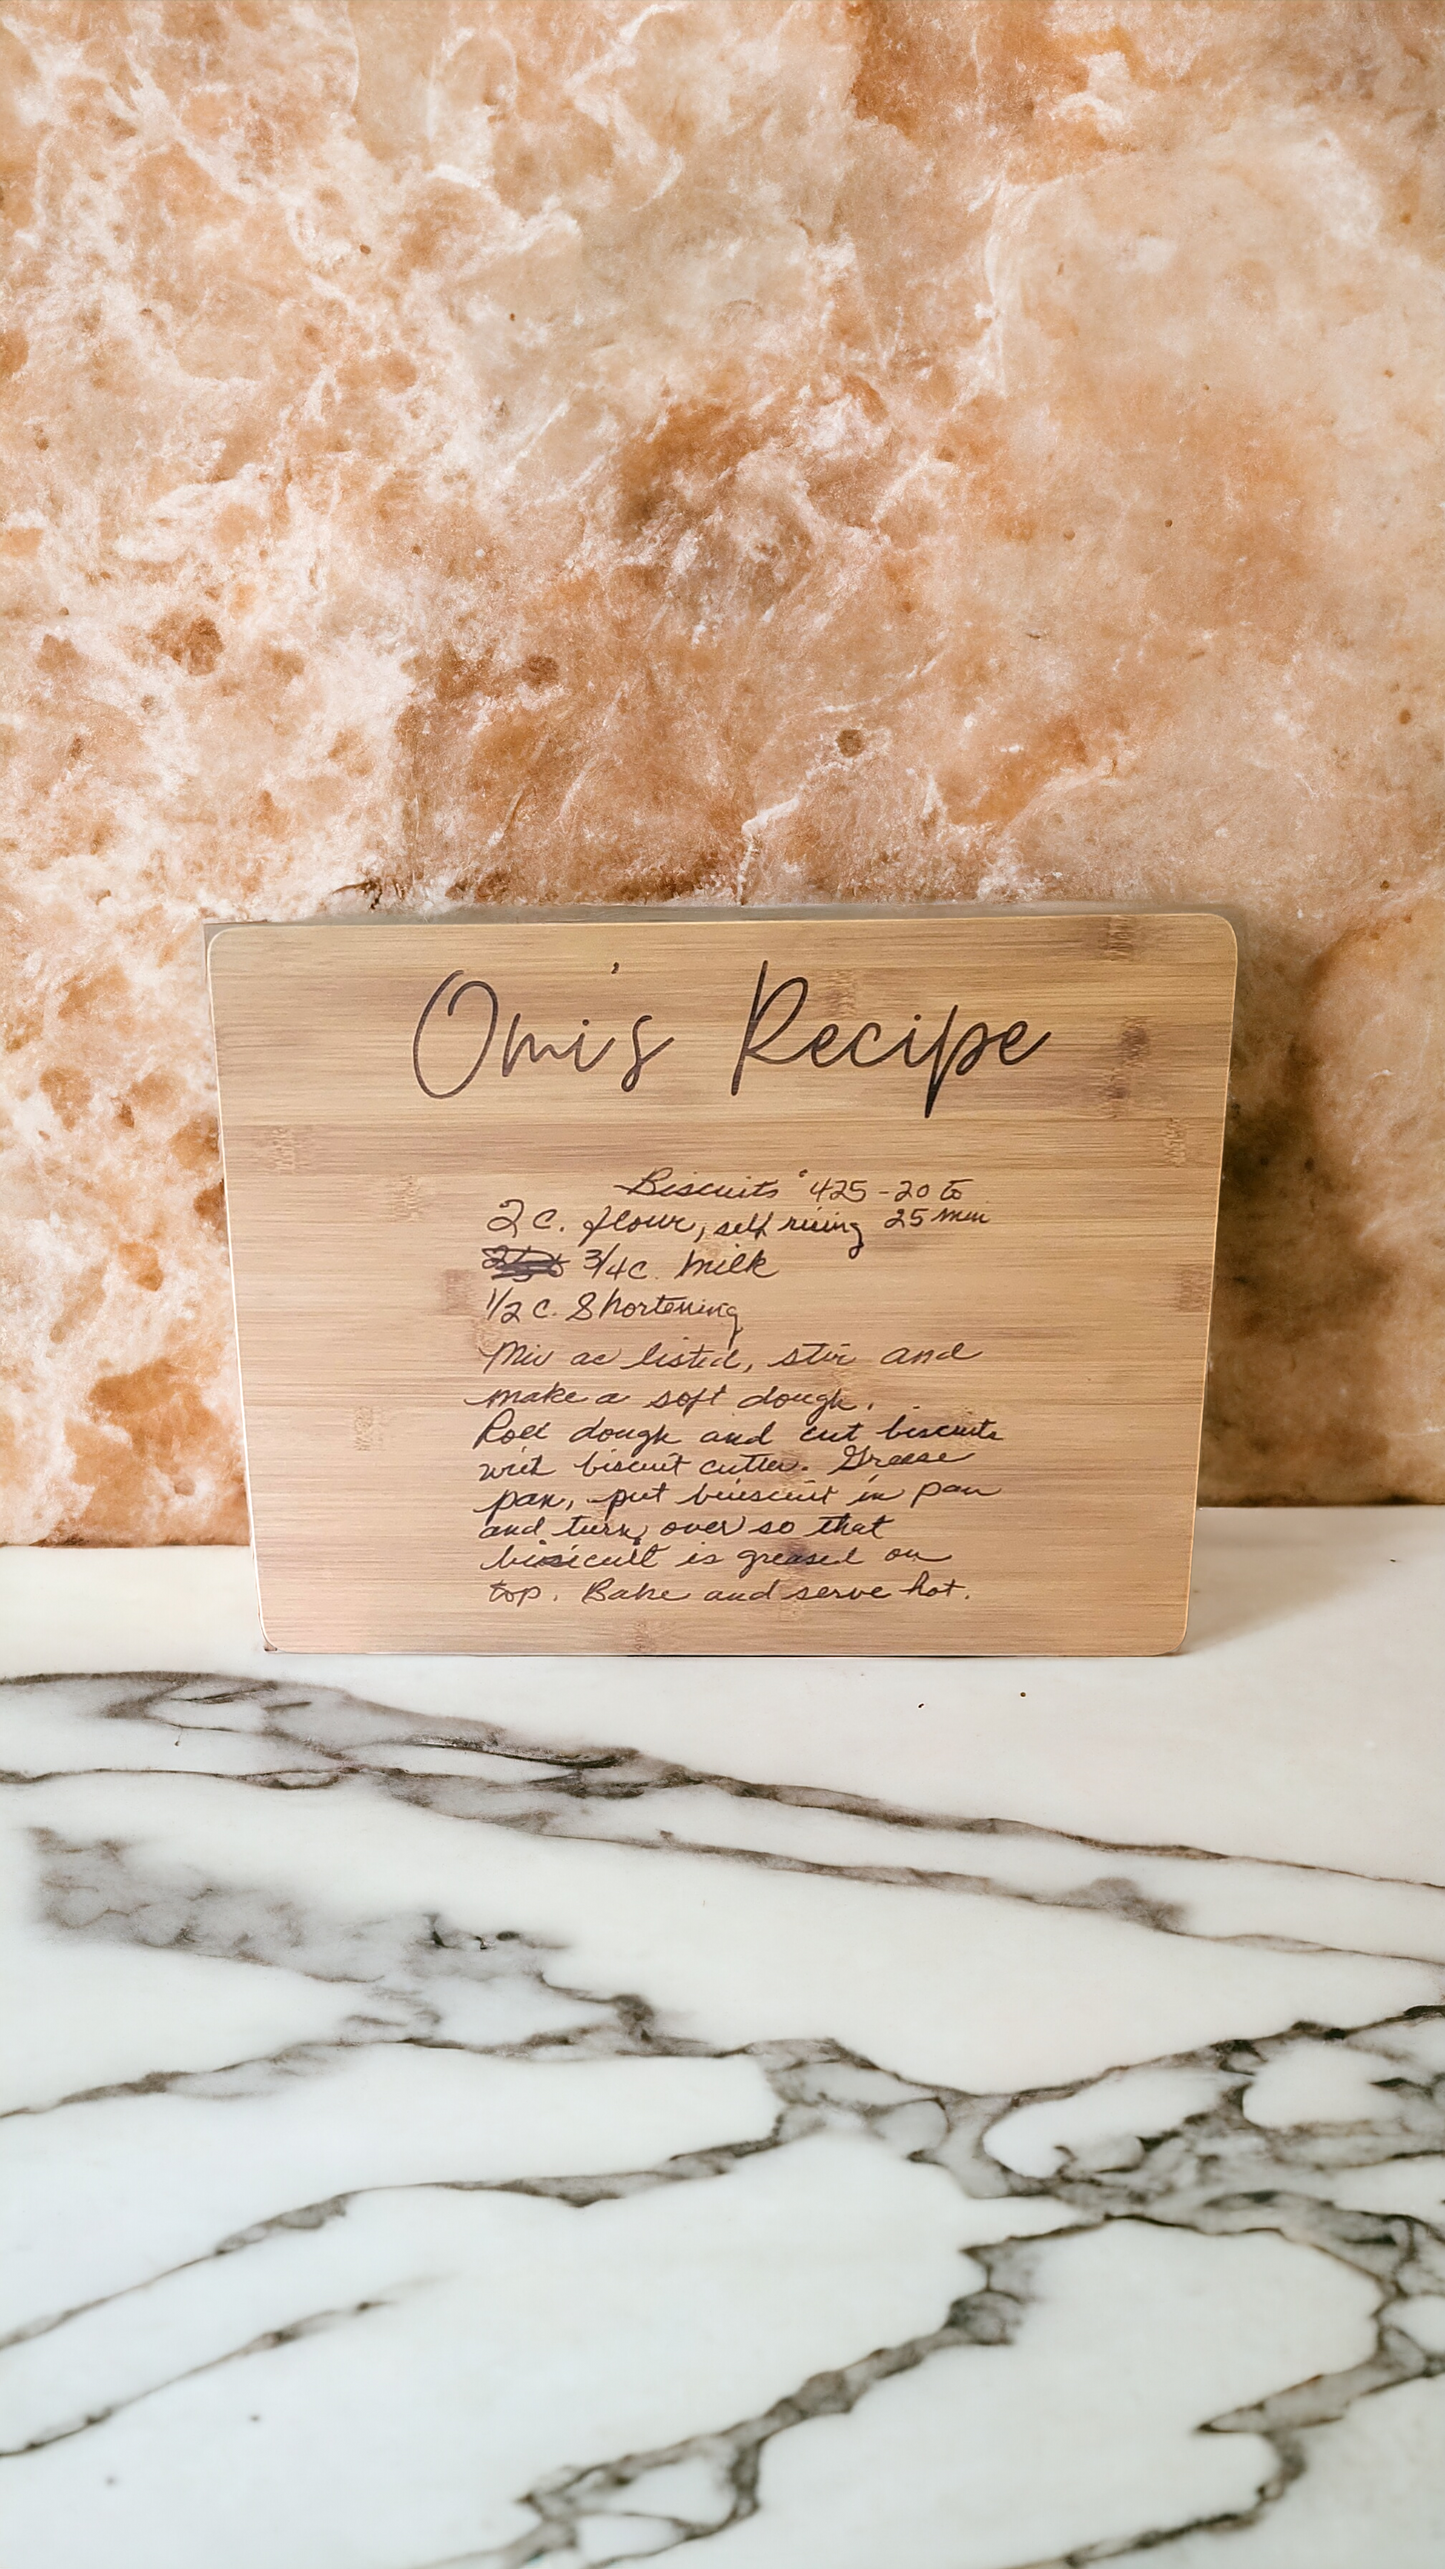 Omi's Recipe
Biscuits °425-20 to
25 min
2 c. flour, self rising
3/4 c. Milk
1/2 c. Shortening
Mix as listed, stir and
make a soft dough.
Roll dough and cut biscuits
with biscuit cutter. Grease
pan, put biuscuit in pan
and turn over so that
is greased on
top. Bake and serve hot.